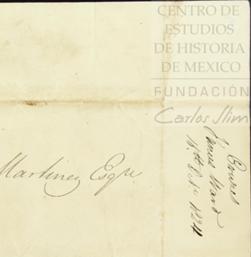 CENTRO DE
ESTUDIOS
DE HISTORIA
DE MEXICO
FUNDACIÓN
Carlos Slim
Martinez Esqre
Ward
1824